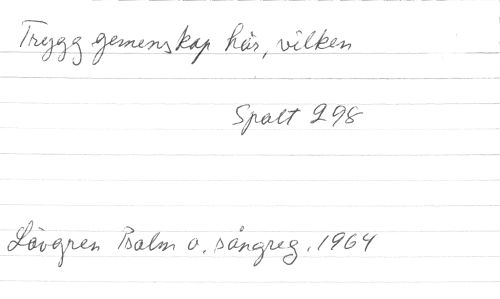 Trygg gemenskap här, vilken
Spalt 298
Lövgren Psalm o. sångreg. 1964